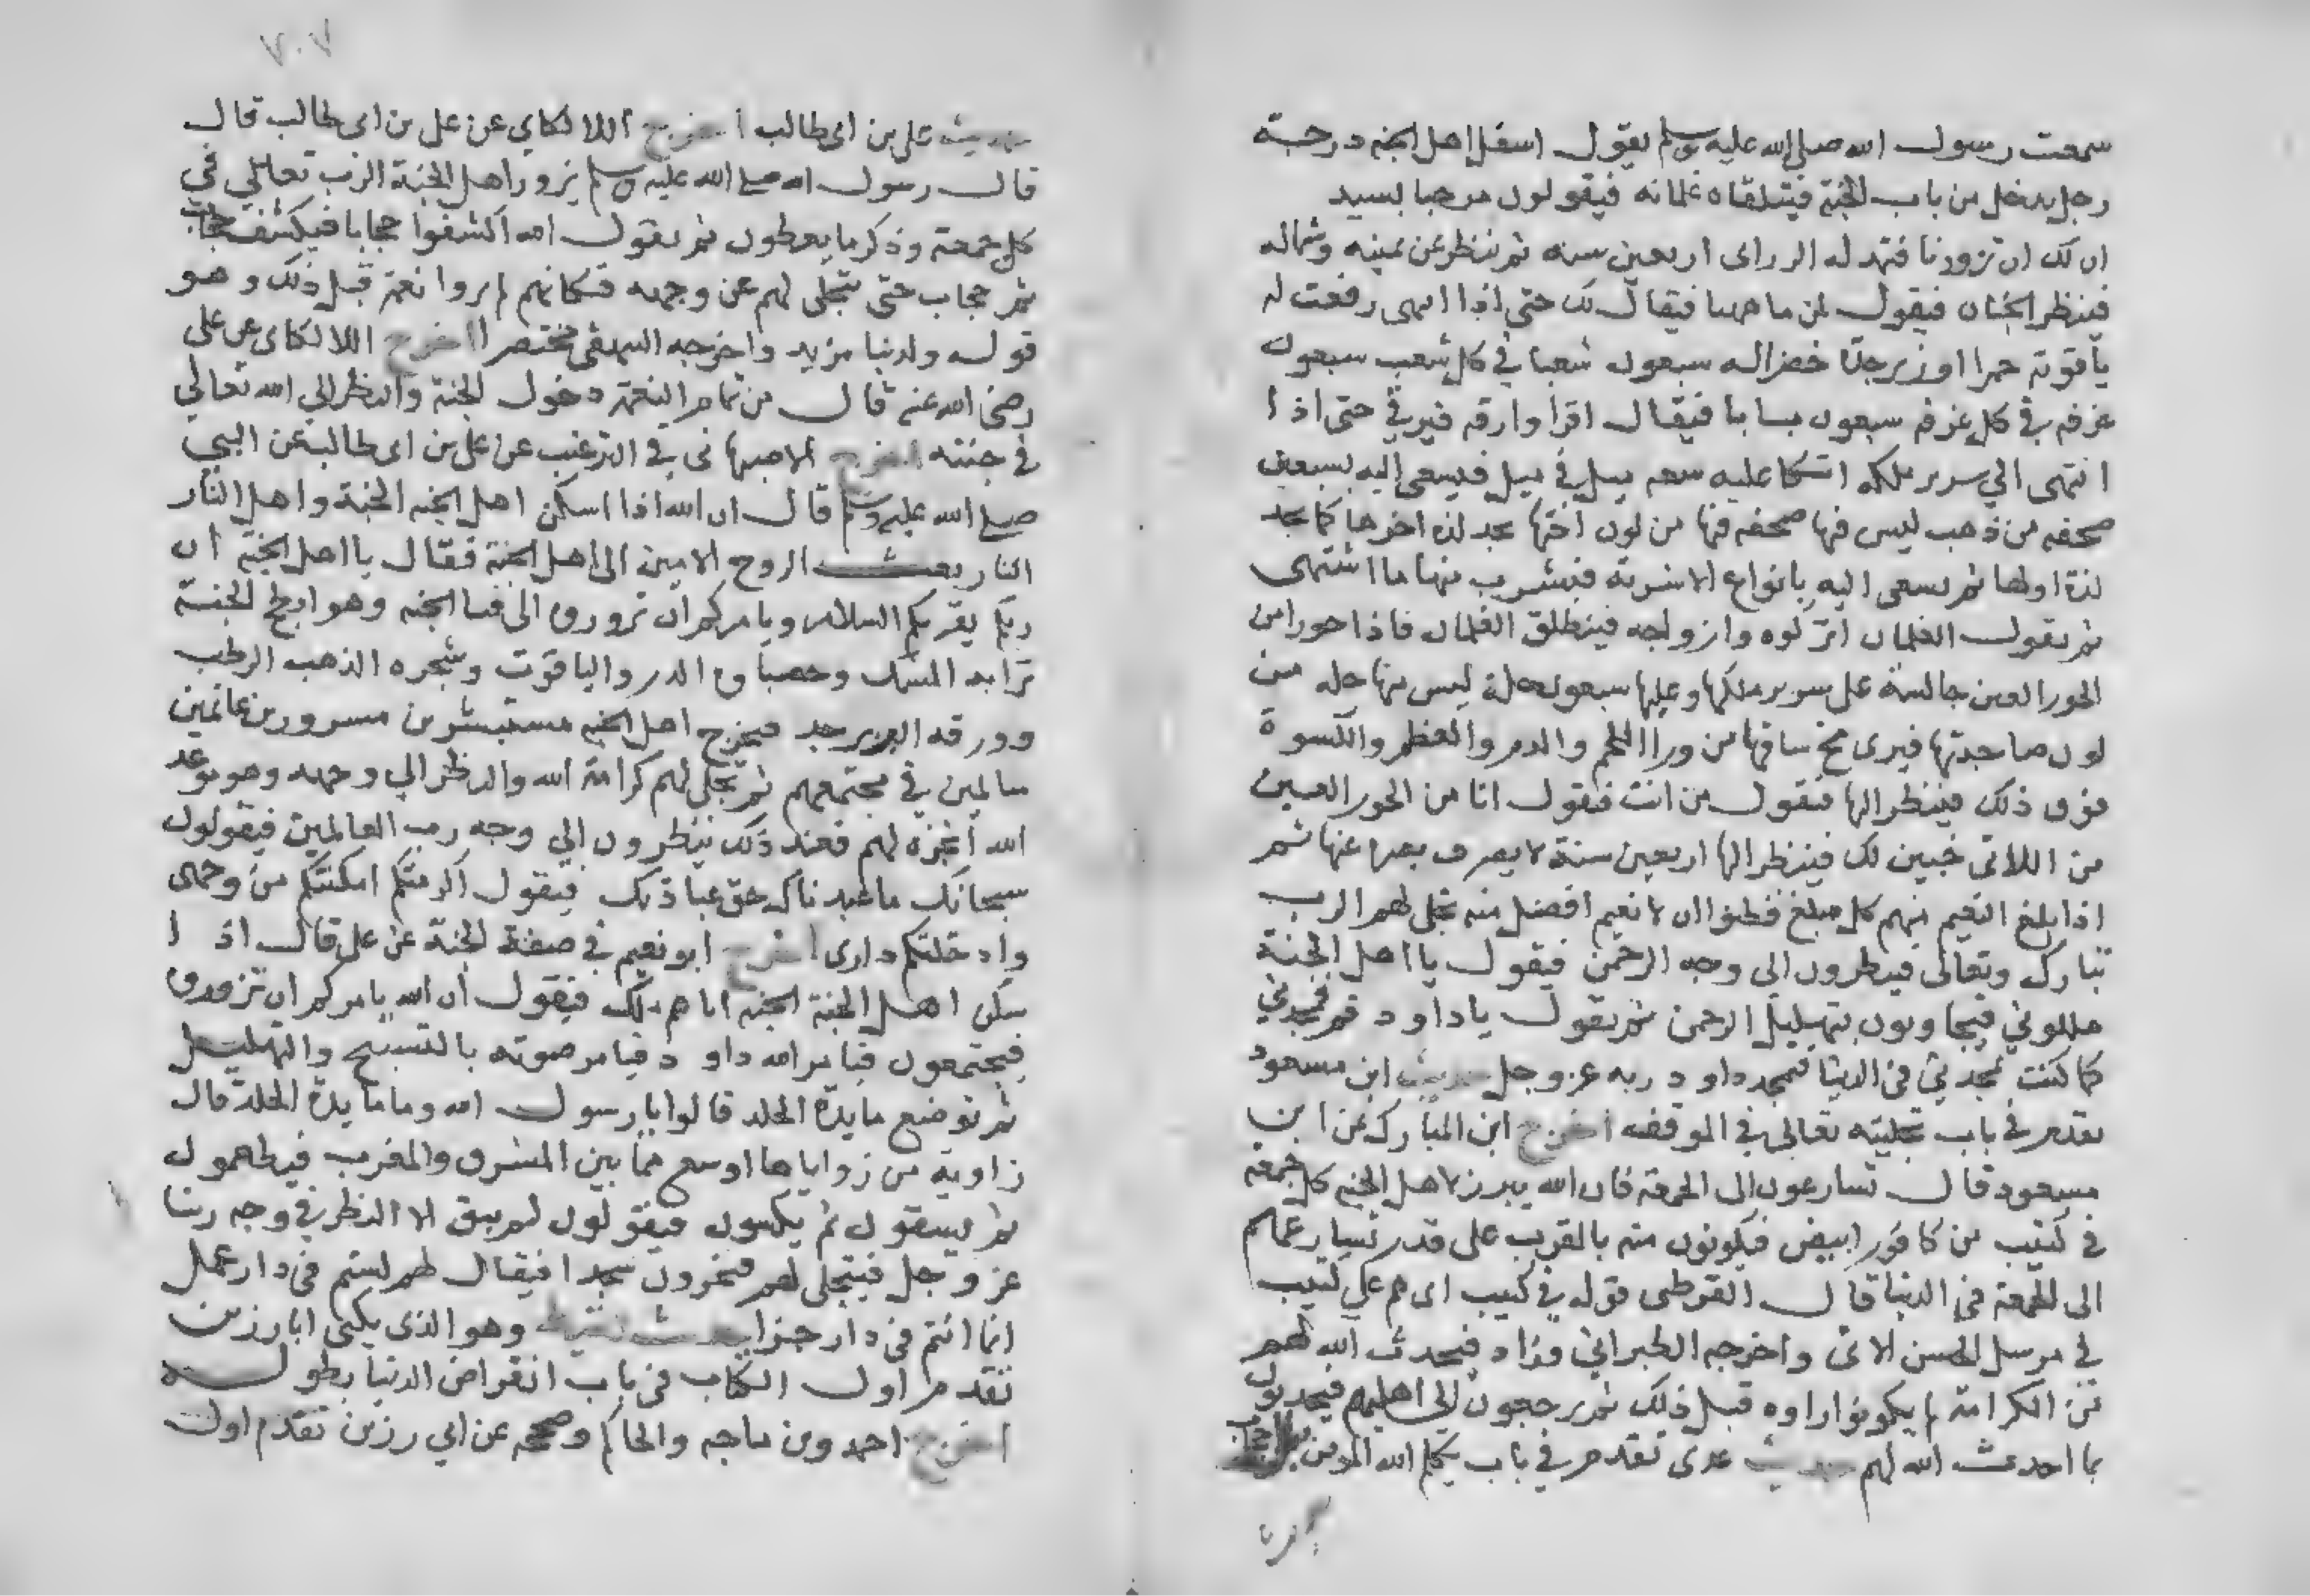 سمعت رسول الله صلى الله عليه وسلم يقول اسفل اهل الجنه درجة
رجل يدخل من باب الجنة فيتلقاه غلمانه فيقولون مرحبا بسيد
ان لك ان تزورنا فتمد له الزرابى اربعين سنه ثم ينظر عن يمينه وشماله
فينظر الجنان فيقول لمن ماههنا فيقال لك حتى اذا انتهى رفعت له
ياقوتة حمرا او زبرجدة خضرا له سبعون شعبا فى كل شعب سبعون
غرفه فى كل غرفه سبعون بابا فيقال اقرا وارقه فيرقى حتى اذا
انتهى الي سرير ملكه اتكا عليه سعه ميل فى ميل فيسعى اليه بسبعين
صحفه من ذهب ليس فيها صحفه فيها من لون اختها يجد لذه اخرها كما يجد
لذة اولها ثم يسعى اليه بانواع الاشربه فيشرب منها ما اشتهى
ثم يقول الغلمان اتركوه وازواجه فينطلق الغلمان فاذا حورا من
الحور العين جالسة على سرير ملكها وعليها سبعون حلة ليس منها حله من
لون صاحبتها فيرى مخ ساقها من ورا اللحم والدم والعظم والكسوة
فوق ذلك فينظر اليها فيقول من انت فتقول انا من الحور العين
من اللاتى خبين لك فينظر اليها اربعين سنة لا يصرف بصره عنها ثم
اذا بلغ النعيم منهم كل مبلغ فظنوا ان لا نعيم افضل منه تجلى لهم الرب
تبارك وتعالى فينظرون الى وجه الرحمن فيقول يا اهل الجنة
هللوني فيجاوبون بتهليل الرحمن ثم يقول يا داود قم فمجدني
كما كنت تمجدني فى الدنيا فيمجد داود ربه عز وجل حديث ابن مسعود
تقدم فى باب تجليه تعالى فى الموقف اخرج ابن المبارك عن ابن
مسعود قال تسارعون الى الجمعة فان الله يبرز لاهل الجنه كل جمعة
فى كثيب من كافور ابيض فيكونون منه بالقرب على قدر تسارعهم
الى الجمعة فى الدنيا قال القرطبى قوله فى كثيب اى هم علي كثيب
في مرسل الحسن الاتى واخرجه الطبراني وزاد فيحدث الله لهم
من الكرامة لم يكونوا راوه قبل ذلك ثم يرجعون الى اهليهم فيحدثون
بما احدث الله لهم حديث عدى تقدم فى باب يكلم الله المومن
حديث على بن ابى طالب اخرج اللالكاى عن على بن ابى طالب قال
قال رسول الله صلى الله عليه وسلم يزور اهل الجنة الرب تعالي في
كل جمعة وذكر ما يعطون ثم يقول الله اكشفوا حجابا فيكشف حجاب
ثم حجاب حتى يتجلى لهم عن وجهه فكانهم لم يروا نعمة قبل ذلك وهو
قوله ولدينا مزيد واخرجه البيهقى مختصرا اخرج اللالكاى عن على
رضى الله عنه قال من تمام النعمة دخول الجنة والنظر الى الله تعالي
فى جنته اخرج الاصبهانى فى الترغيب عن على بن ابى طالب عن النبي
صلى الله عليه وسلم قال ان الله اذا اسكن اهل الجنه الجنة واهل النار
النار بعث الروح الامين الى اهل الجنة فقال يا اهل الجنة ان
ربكم يقريكم السلام ويامركم ان تزوروه الى فنا الجنه وهو ابطح الجنة
ترابه المسك وحصباوه الدر والياقوت وشجره الذهب الرطب
وورقه الزبرجد فيخرج اهل الجنه مستبشرين مسرورين غانمين
سالمين في مجتمعهم ثم تحل لهم كرامة الله والنظر الي وجهه وهو موعد
الله انجزه لهم فعند ذلك ينظرون الي وجه رب العالمين فيقولون
سبحانك ما عبدناك حق عبادتك فيقول اكرمتكم امكنتكم من وجهى
وادخلتكم دارى اخرج ابو نعيم فى صفة الجنة عن على قال اذا
سكن اهل الجنة الجنه اتاهم ملك فيقول ان الله يامركم ان تزوروه
فيجتمعون فيامر الله داود فيامر صوته بالتسبيح والتهليل
ثم توضع مايدة الخلد قالوا يا رسول الله وما مايدة الخلد قال
زاوية من زواياها اوسع مما بين المشرق والمغرب فيطعمون
ثم يسقون ثم يكسون فيقولون لم يبق الا النظر فى وجه ربنا
عز وجل فيتجلى لهم فيخرون سجدا فيقال لهم لستم فى دار عمل
انما انتم فى دار جزا حديث لقيط وهو الذى يكنى ابا رزين
تقدم اول الكتاب فى باب انقراض الدنيا بطوله
اخرج احمد وبن ماجه والحاكم وصححه عن ابي رزين تقدم اول